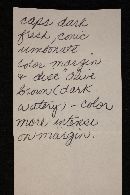 caps dark
fresh, conic
umbonate
color margin
& disc olive
brown (dark
watery) - color
more intense
on margin.